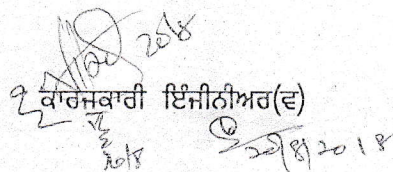 20/8
ਕਾਰਜਕਾਰੀ ਇੰਜੀਨੀਅਰ(ਵ)
20/8 20/8/2018